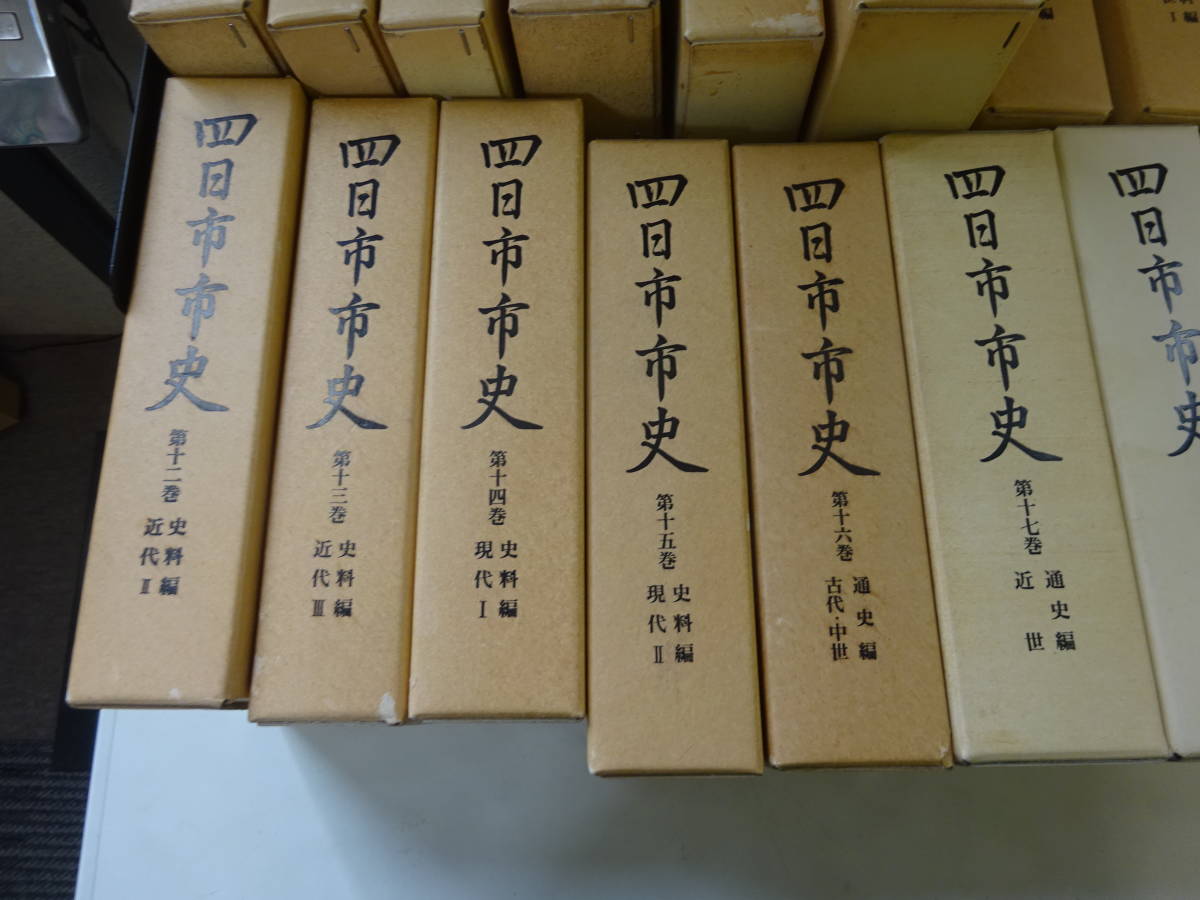 四日市市史
第十二巻
史料編
近代Ⅱ
四日市市史
第十三巻
史料編
近代Ⅲ
四日市市史
第十四巻
史料編
現代Ⅰ
四日市市史
第十五巻
史料編
現代Ⅱ
四日市市史
第十六巻
通史編
古代・中世
四日市市史
第十七巻
通史編
近世
四日市市史
編
編
Ⅰ